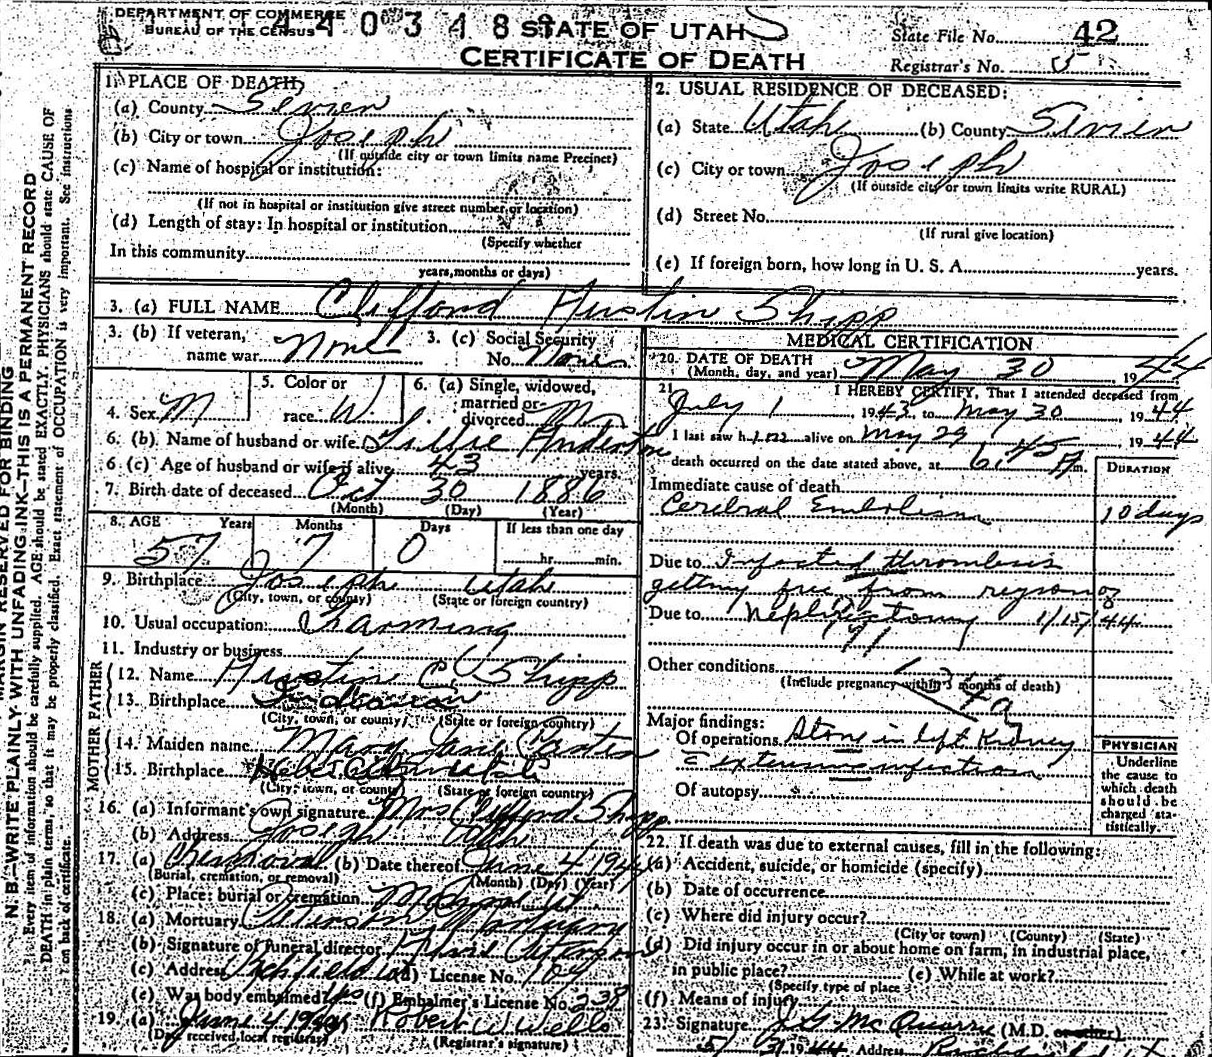 DEPARTMENT OF COMMERCE
BUREAU OF THE CENSUS
STATE OF UTAH
CERTIFICATE OF DEATH
State File No. 42
Registrar's No. 5
N. B.—WRITE PLAINLY WITH UNFADING INK—THIS IS A PERMANENT RECORD
MARGIN RESERVED FOR BINDING
Every item of information should be carefully supplied. AGE should be stated EXACTLY. PHYSICIANS should state CAUSE OF
DEATH in plain terms, so that it may be properly classified. Exact statement of OCCUPATION is very important. See instructions
on back of certificate.
1. PLACE OF DEATH
(a) County Sevier
(b) City or town Joseph
(If outside city or town limits name Precinct)
(c) Name of hospital or institution:
(If not in hospital or institution give street number or location)
(d) Length of stay: In hospital or institution
(Specify whether
In this community
years, months or days)
2. USUAL RESIDENCE OF DECEASED:
(a) State Utah (b) County Sevier
(c) City or town Joseph
(If outside city or town limits write RURAL)
(d) Street No.
(If rural give location)
(e) If foreign born, how long in U. S. A. years.
3. (a) FULL NAME Clifford Shipp
3. (b) If veteran, name war None
3. (c) Social Security No. None
4. Sex M
5. Color or race W
6. (a) Single, widowed, married or divorced M
6. (b). Name of husband or wife Lillie
6 (c) Age of husband or wife if alive 43 years
7. Birth date of deceased Oct 30 1886
(Month) (Day) (Year)
8. AGE Years Months Days If less than one day
57 7 0 hr. min.
9. Birthplace Joseph Utah
(City, town, or county) (State or foreign country)
10. Usual occupation: Farming
11. Industry or business
FATHER
12. Name C. Shipp
13. Birthplace
(City, town, or county) (State or foreign country)
MOTHER
14. Maiden name Mary Jane
15. Birthplace Heber City Utah
(City, town, or county) (State or foreign country)
16. (a) Informant's own signature Mrs Clifford Shipp
(b) Address Joseph Utah
17. (a) Removal (b) Date thereof June 4 1944
(Burial, cremation, or removal) (Month) (Day) (Year)
(c) Place: burial or cremation
18. (a) Mortuary Peterson Mortuary
(b) Signature of funeral director Peterson
(c) Address Richfield (d) License No. 164
(e) Was body embalmed yes (f) Embalmer's License No. 238
19. (a) June 4 1944 Robert W. Wells
(Date received, local registrar) (Registrar's signature)
MEDICAL CERTIFICATION
20. DATE OF DEATH
(Month, day, and year) May 30 1944
21. I HEREBY CERTIFY, That I attended deceased from
July 1 1943, to May 30 1944
I last saw him alive on May 29 1944
death occurred on the date stated above, at 6:45 P m.
DURATION
Immediate cause of death
Cerebral Embolism 10 days
Due to Infected thrombosis
getting free from region of
Due to Nephrectomy 1/15/44
Other conditions
(Include pregnancy within 3 months of death)
Major findings:
Of operations Stone in left Kidney
extensive infection
Of autopsy
PHYSICIAN
Underline
the cause to
which death
should be
charged sta-
tistically.
22. If death was due to external causes, fill in the following:
(a) Accident, suicide, or homicide (specify)
(b) Date of occurrence
(c) Where did injury occur?
(City or town) (County) (State)
(d) Did injury occur in or about home on farm, in industrial place,
in public place? (e) While at work?
(Specify type of place)
(f) Means of injury
23. Signature J G McQuarrie (M.D. or other)
5/31 1944 Address